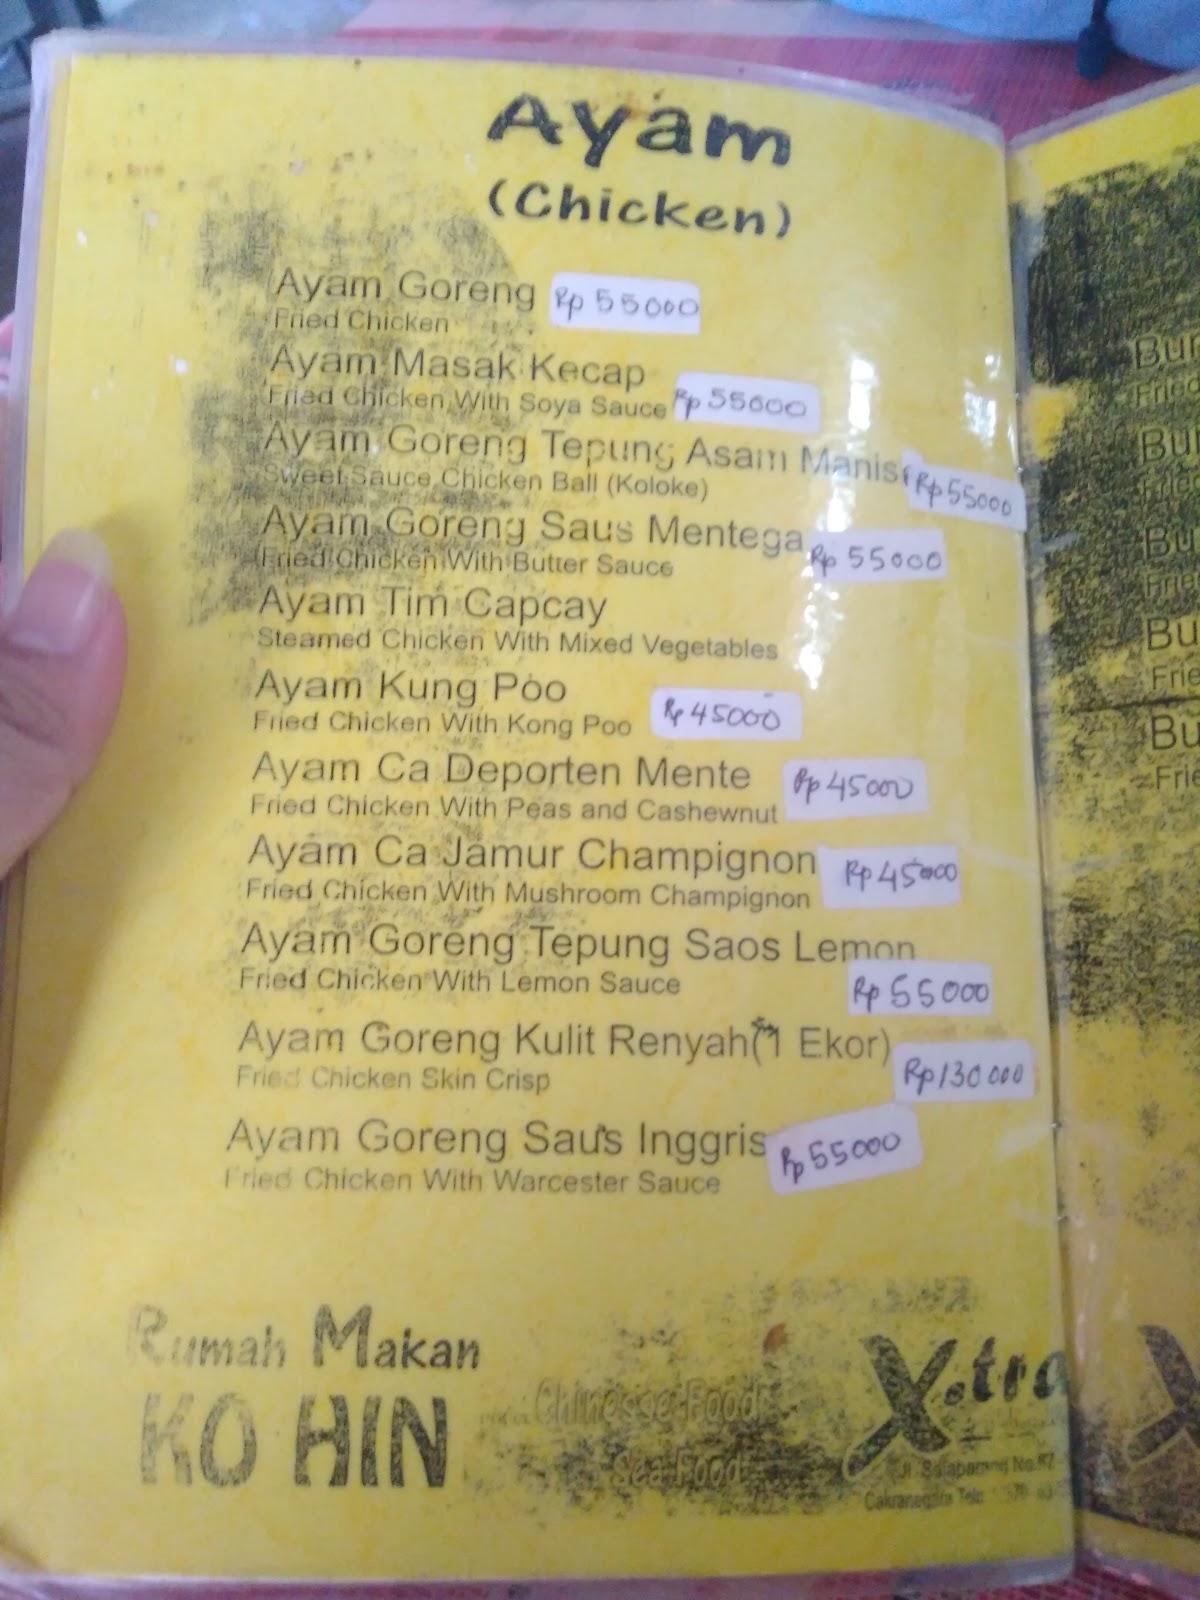 Ayam
(Chicken)
Ayam Goreng Rp 55000
Fried Chicken
Ayam Masak Kecap
Fried Chicken With Soya Sauce Rp 55000
Ayam Goreng Tepung Asam Manis Rp 55000
Sweet Sauce Chicken Ball (Koloke)
Ayam Goreng Saus Mentega Rp 55000
Fried Chicken With Butter Sauce
Ayam Tim Capcay
Steamed Chicken With Mixed Vegetables
Ayam Kung Poo
Fried Chicken With Kong Poo Rp 45000
Ayam Ca Deporten Mente Rp 45000
Fried Chicken With Peas and Cashewnut
Ayam Ca Jamur Champignon Rp 45000
Fried Chicken With Mushroom Champignon
Ayam Goreng Tepung Saos Lemon
Fried Chicken With Lemon Sauce Rp 55000
Ayam Goreng Kulit Renyah(1 Ekor)
Fried Chicken Skin Crisp Rp 130 000
Ayam Goreng Saus Inggris Rp 55000
Fried Chicken With Warcester Sauce
Rumah Makan
KO HIN
Chinesse Food
Sea Food
X.tra
Jl. Selaparang No.
Cakranegara Telp.